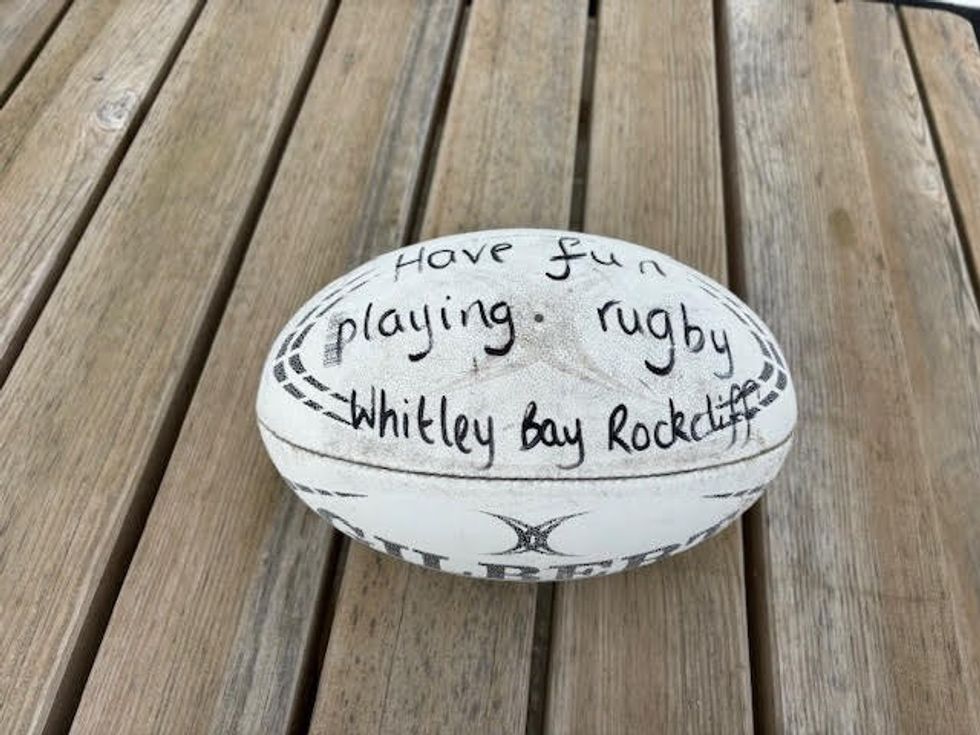 Have fun
playing rugby
Whitley Bay Rockcliff
GILBERT